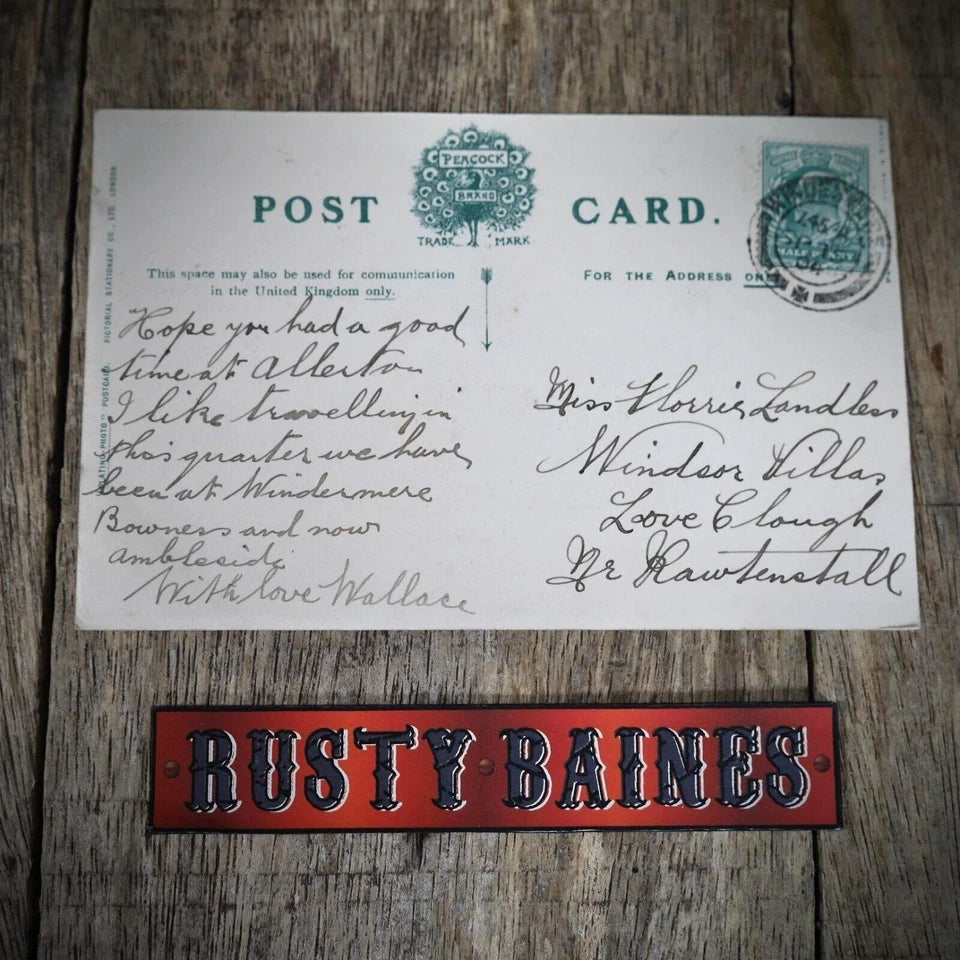 PEACOCK
BRAND
TRADE MARK
POST CARD.
This space may also be used for communication
in the United Kingdom only.
FOR THE ADDRESS
PICTORIAL STATIONERY CO., LTD. LONDON
PHOTO" POSTCARD.
Hope you had a good
time at Allerton
I like travelling in
this quarter we have
been at Windermere
Bowness and now
ambleside
With love Wallace
HALFPENNY
Miss Florrie Landless
Windsor Villas
Love Clough
Nr Rawtenstall
RUSTY BAINES